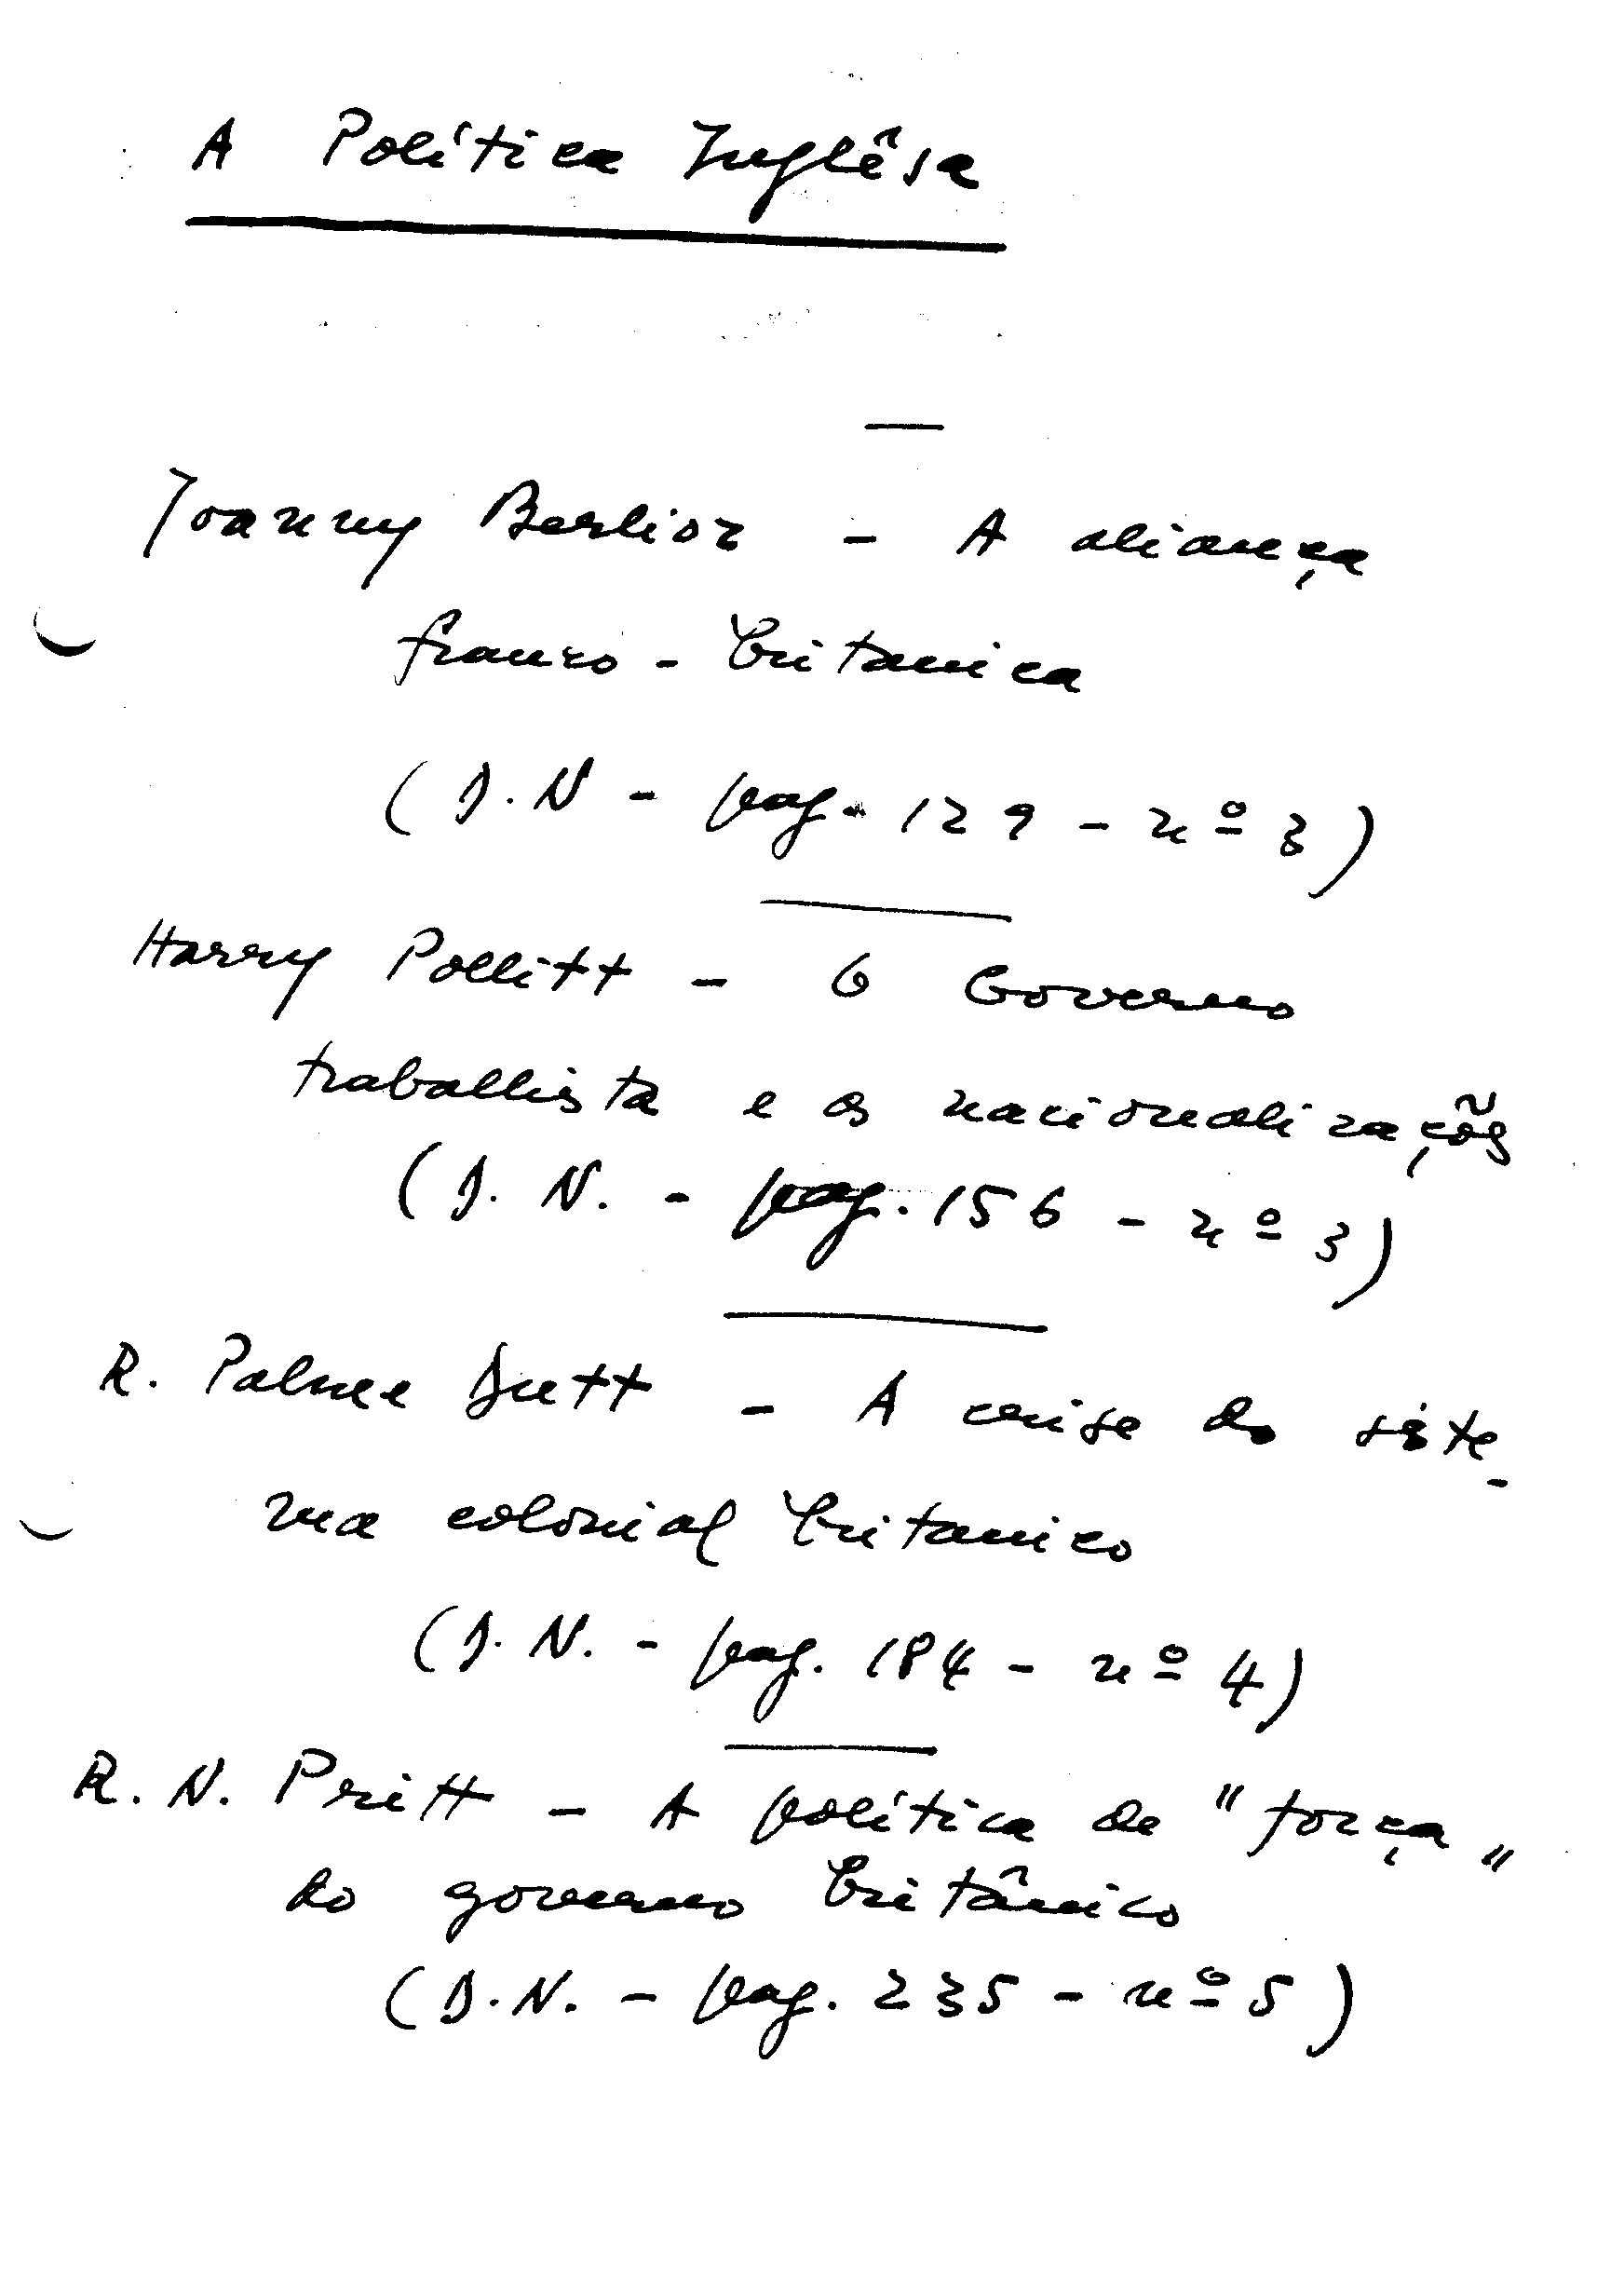 A Política Inglêsa
Joanny Berlioz - A aliança
franco - britanica
(D. N - pag. 129 - nº 3)
Harry Pollitt - O Governo
trabalhista e as nacionalizações
(D. N. - pag. 156 - nº 3)
R. Palme Dutt - A crise do siste-
ma colonial britanico
(D. N. - pag. 184 - nº 4)
R. N. Pritt - A política de "força"
do governo britânico
(D. N. - pag. 235 - nº 5)